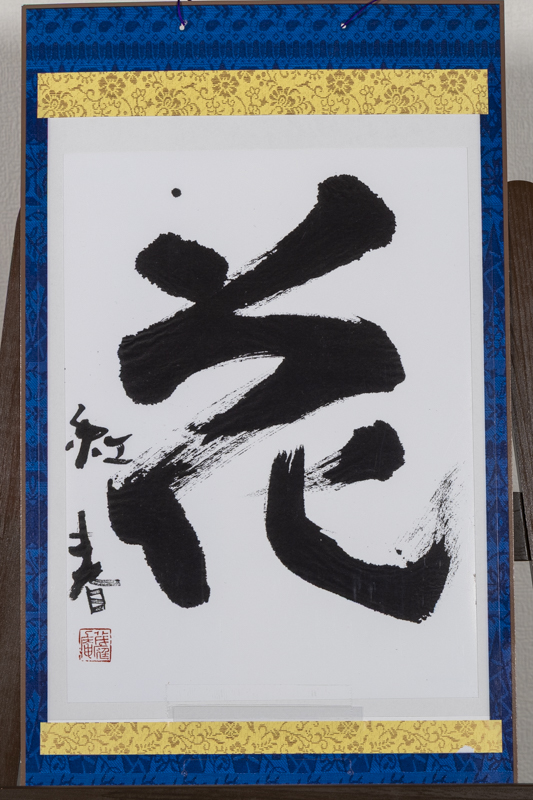 花
紅春